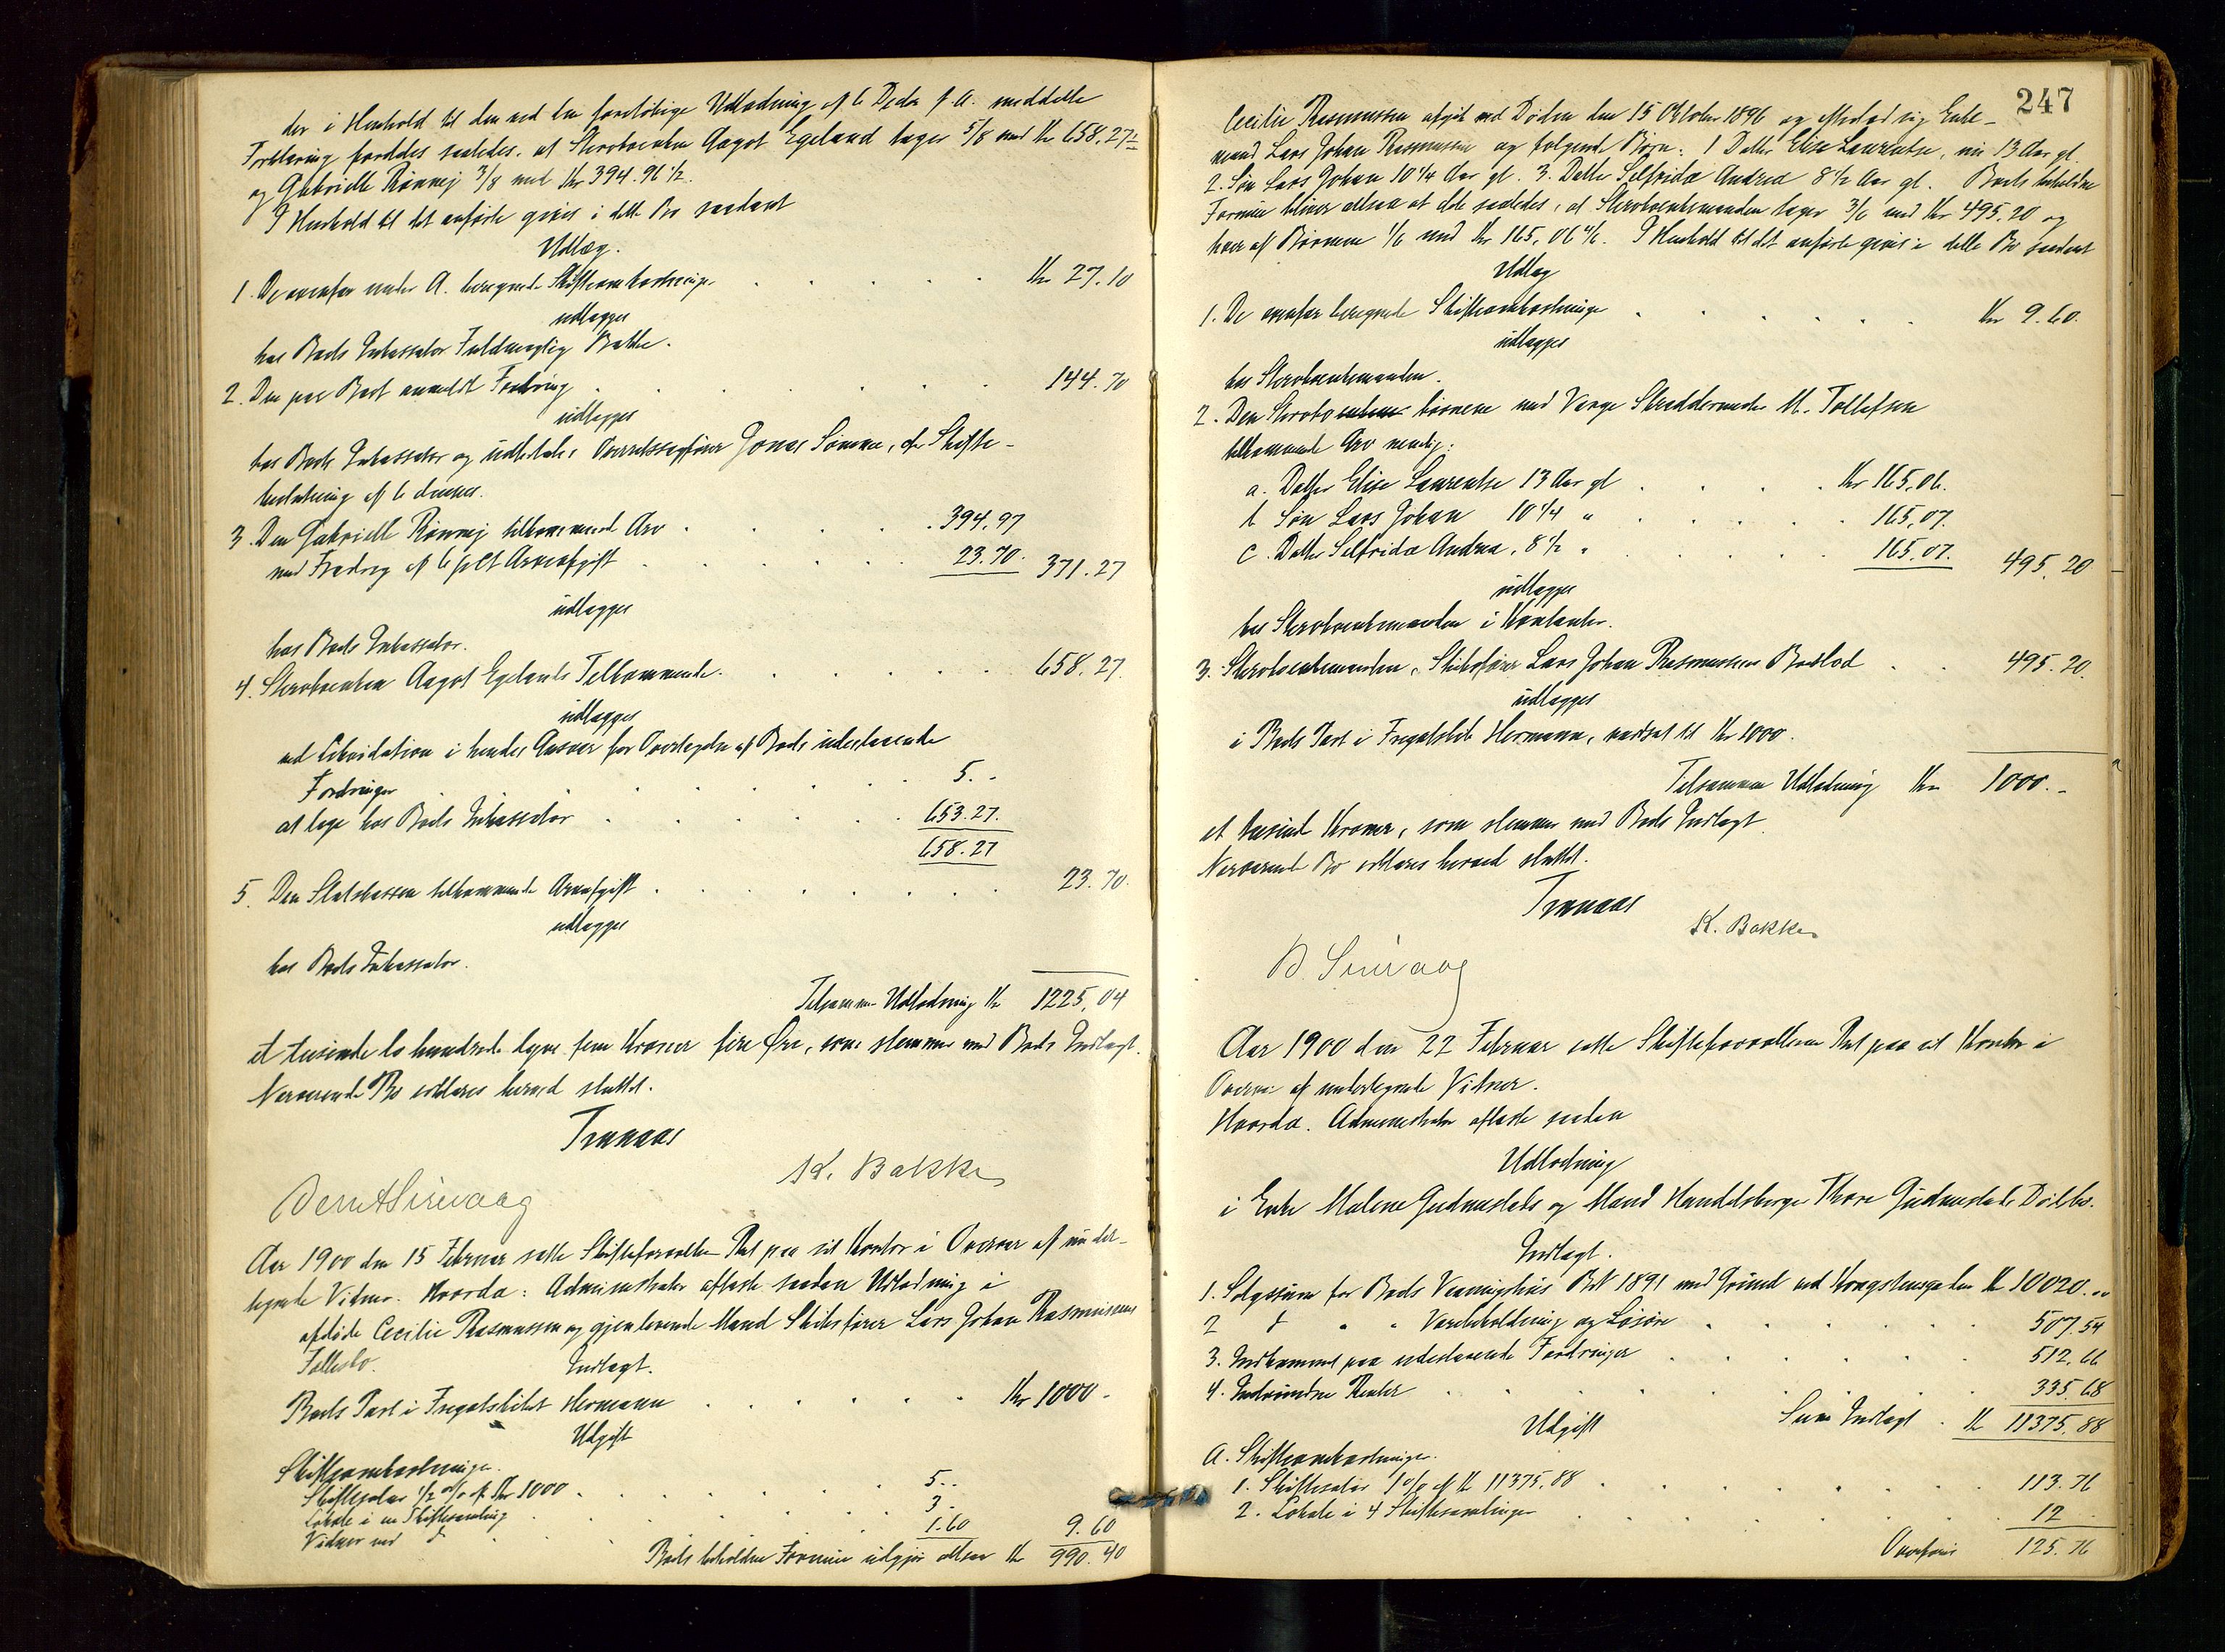 der i Henhold til den ved den foreløbige Udlodning af 6 Decbr f. A. meddelte
Forklaring fordeles saaledes, at Stervboenken Aagot Egeland tager 5/8 med Kr 658.27½
og Gabrielle Rønnej 3/8 med Kr 394.96½.
I Henhold til det anførte gives i dette Bo saadant
Udlæg.
1. De ovenfor under A. beregnede Skifteomkostninger Kr 27.10
udlægges
hos Boets Inkassator Fuldmægtig Bakke.
2. Den paa Boet anmeldt Fordring 144.70
udlægges
hos Boets Inkassator og udbetales Overretssagfører Jonas Sømme, cfr Skifte-
beslutning af 6 dennes.
3. Den Gabrielle Rønnej tilkommende Arv 394.97
med Fradrag af 6 pCt Arveafgift 23.70. 371.27
udlægges
hos Boets Inkassator.
4. Stervboenken Aagot Egelands Tilkommende 658.27.
udlægges
ved Likvidation i hendes Ansvar for Overtagelse af Boets udestaaende
Fordringer 5.-
at tage hos Boets Inkassator 653.27.
658.27
5. Den Statskassen tilkommende Arveafgift 23.70.
udlægges
hos Boets Inkassator.
Tilsammen Udlodning Kr 1225,04
et tusinde to hundrede tyve fem Kroner fire Øre, som stemmer med Boets Indtægt.
Nærværende Bo erklæres herved sluttet.
K. Bakke
Aar 1900 den 15 Februar satte Skifteforvalteren Ret paa sit Kontor i Overvær af under-
tegnede Vidner. Hvorda: Administrator aflagde saadan Udlodning i
afdøde Cecilie Rasmussen og gjenlevende Mand Skibsfører Lars Johan Rasmussens
Fællesbo.
Indtægt.
Boets Part i Fregatskibet Hermann Kr 1000.-
Udgift
Skifteomkostninger.
Skiftesalær ½ % af Kr 1000 5.-
Lokale i en Skiftesamling 3.-
Vidner ved do 1.60 9.60
Boets beholdne Formue udgjør altsaa Kr 990.40
247
Cecilie Rasmussen afgik ved Døden den 15 Oktober 1896 og efterlod sig Enke-
mand Lars Johan Rasmussen og følgende Børn: 1 Datter Elise Laurentse, nu 13 Aar gl.
2. Søn Lars Johan 10¼ Aar gl. 3. Datter Selfrida Andrea 8½ Aar gl. Boets beholdne
Formue bliver altsaa at dele saaledes, at Stervboenkemanden tager 3/6 med Kr 495.20 og
hver af Børnene 1/6 med Kr 165,06 4/6. I Henhold til det anførte gives i dette Bo saadant
Udlæg
1. De ovenfor beregnede Skifteomkostninger Kr 9.60.
udlægges
hos Stervboenkemanden.
2. Den Stervbo børnene med Verge Skreddermester M. Tollefsen
tilkommende Arv nemlig:
a. Datter Elise Laurentse 13 Aar gl Kr 165,06.
b Søn Lars Johan 10¼ " 165,07.
c. Datter Selfrida Andrea, 8½ " 165.07. 495.20
udlægges
hos Stervboenkemanden i Kontanter.
3. Stervboenkemanden, Skibsfører Lars Johan Rasmussens Boeslod 495.20.
udlægges
i Boets Part i Fregatskib Hermann, værdsat til Kr 1000.
Tilsammen Udlodning Kr 1000.-
et tusinde Kroner, som stemmer med Boets Indtægt
Nærværende Bo erklæres herved sluttet.
K. Bakke
Aar 1900 den 22 Februar satte Skifteforvalteren Ret paa sit Kontor i
Overvær af undertegnede Vidner.
Hvorda. Administrator aflagde saadan
Udlodning
i Enke Malene Gudmestads og Mand Handelsborger Thore Gudmestads Dødsbo.
Indtægt.
1. Salgssum for Boets Vaaningshus No 1891 med Grund ved Kongstensgaden Kr 10020.00
2 do " " Varebeholdning og Løsøre 507.54
3. Indkommet paa udestaaende Fordringer 512.66
4. Indvundne Renter 335.68
Sum Indtægt Kr 11375.88
Udgift
A. Skifteomkostninger.
1. Skiftesalær 1 % af Kr 11375,88 113.76
2. Lokale i 4 Skiftesamlinger 12 -
Overføres 125.76